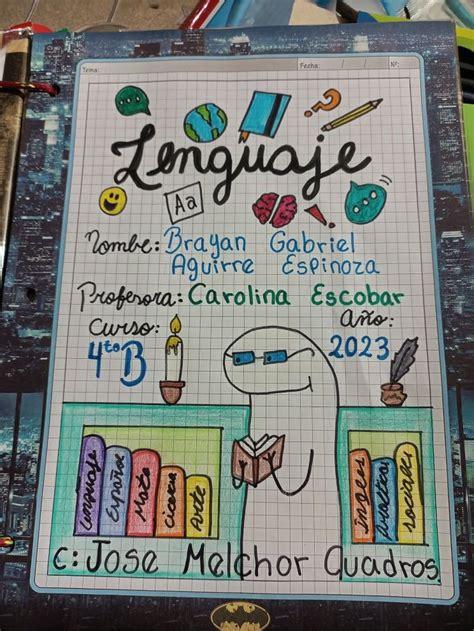 Tema: Fecha: / / Nº:
Lenguaje
Aa
Nombe: Brayan Gabriel
Aguirre Espinoza
Profesora: Carolina Escobar
Curso: Año:
4to B 2023
Lenguaje
Español
Mate
Ciencia
Arte
ingles
sociales
C: Jose Melchor Quadros